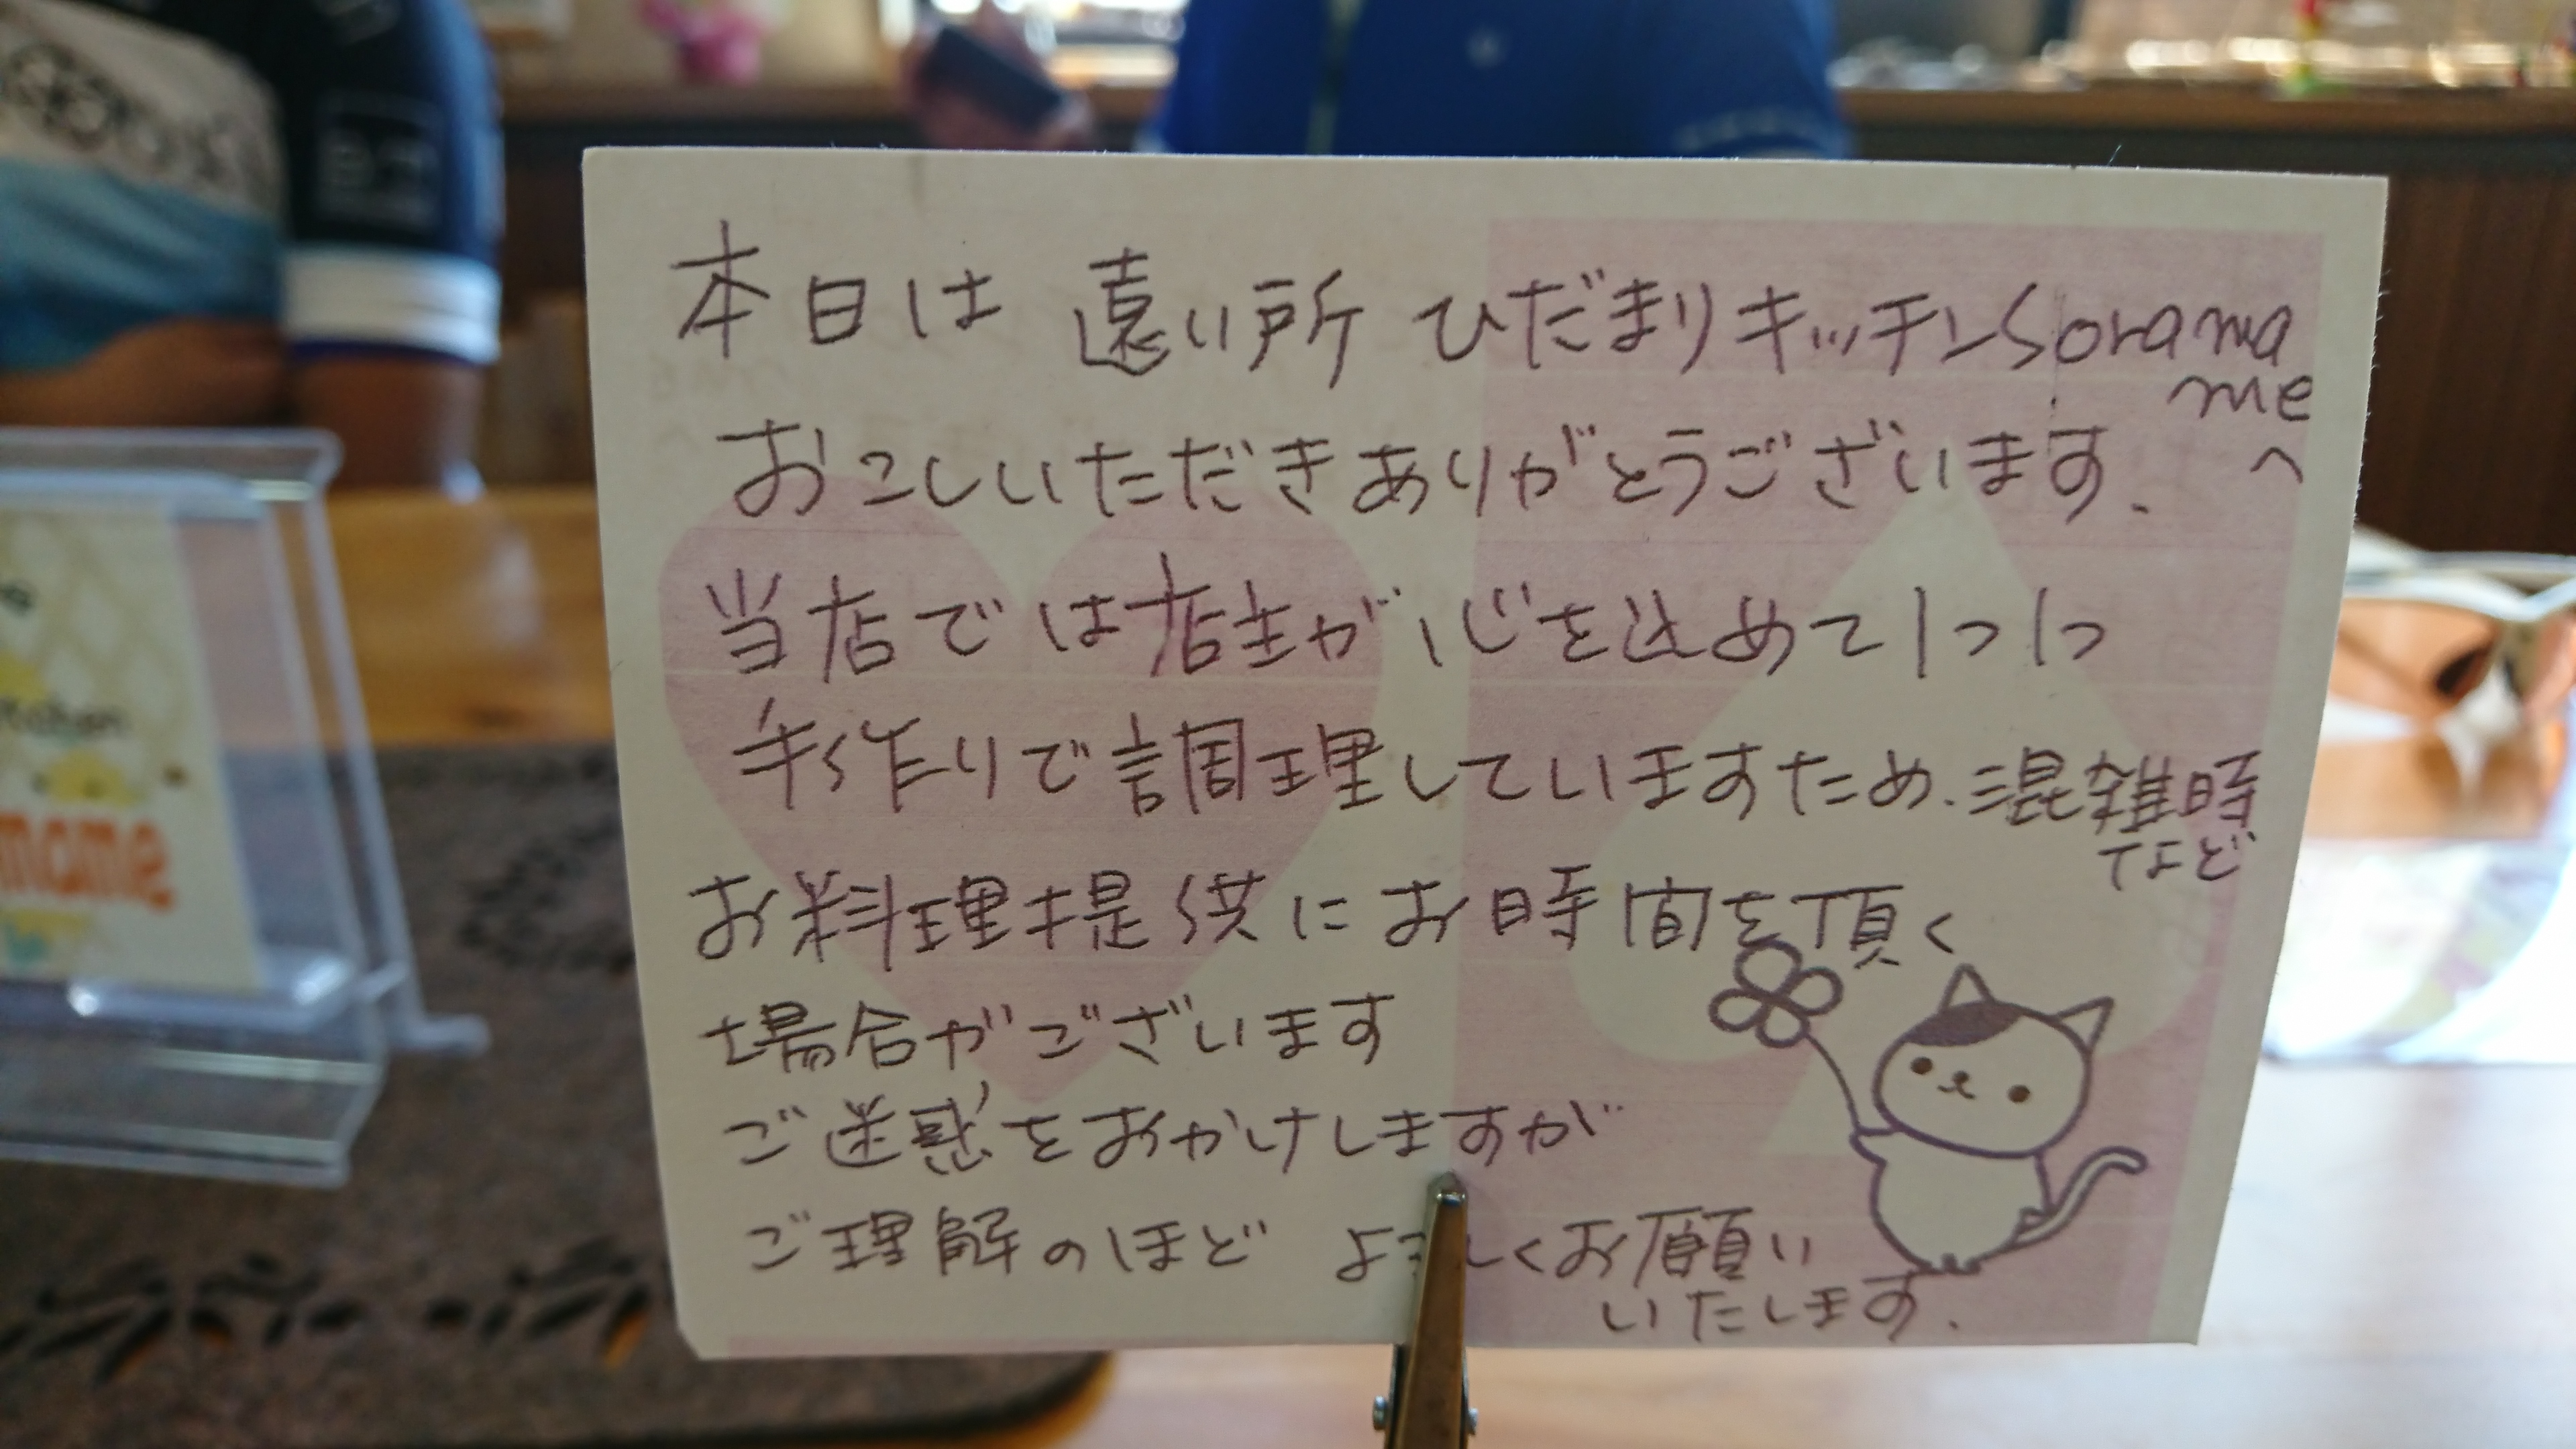 本日は 遠い所 ひだまりキッチンSorama
meへ
おこしいただきありがとうございます.
当店では店主が心を込めて1つ1つ
手作りで調理していますため、混雑時
など
お料理提供にお時間を頂く
場合がございます
ご迷惑をおかけしますが
ご理解のほど よろしくお願い
いたします.
mame